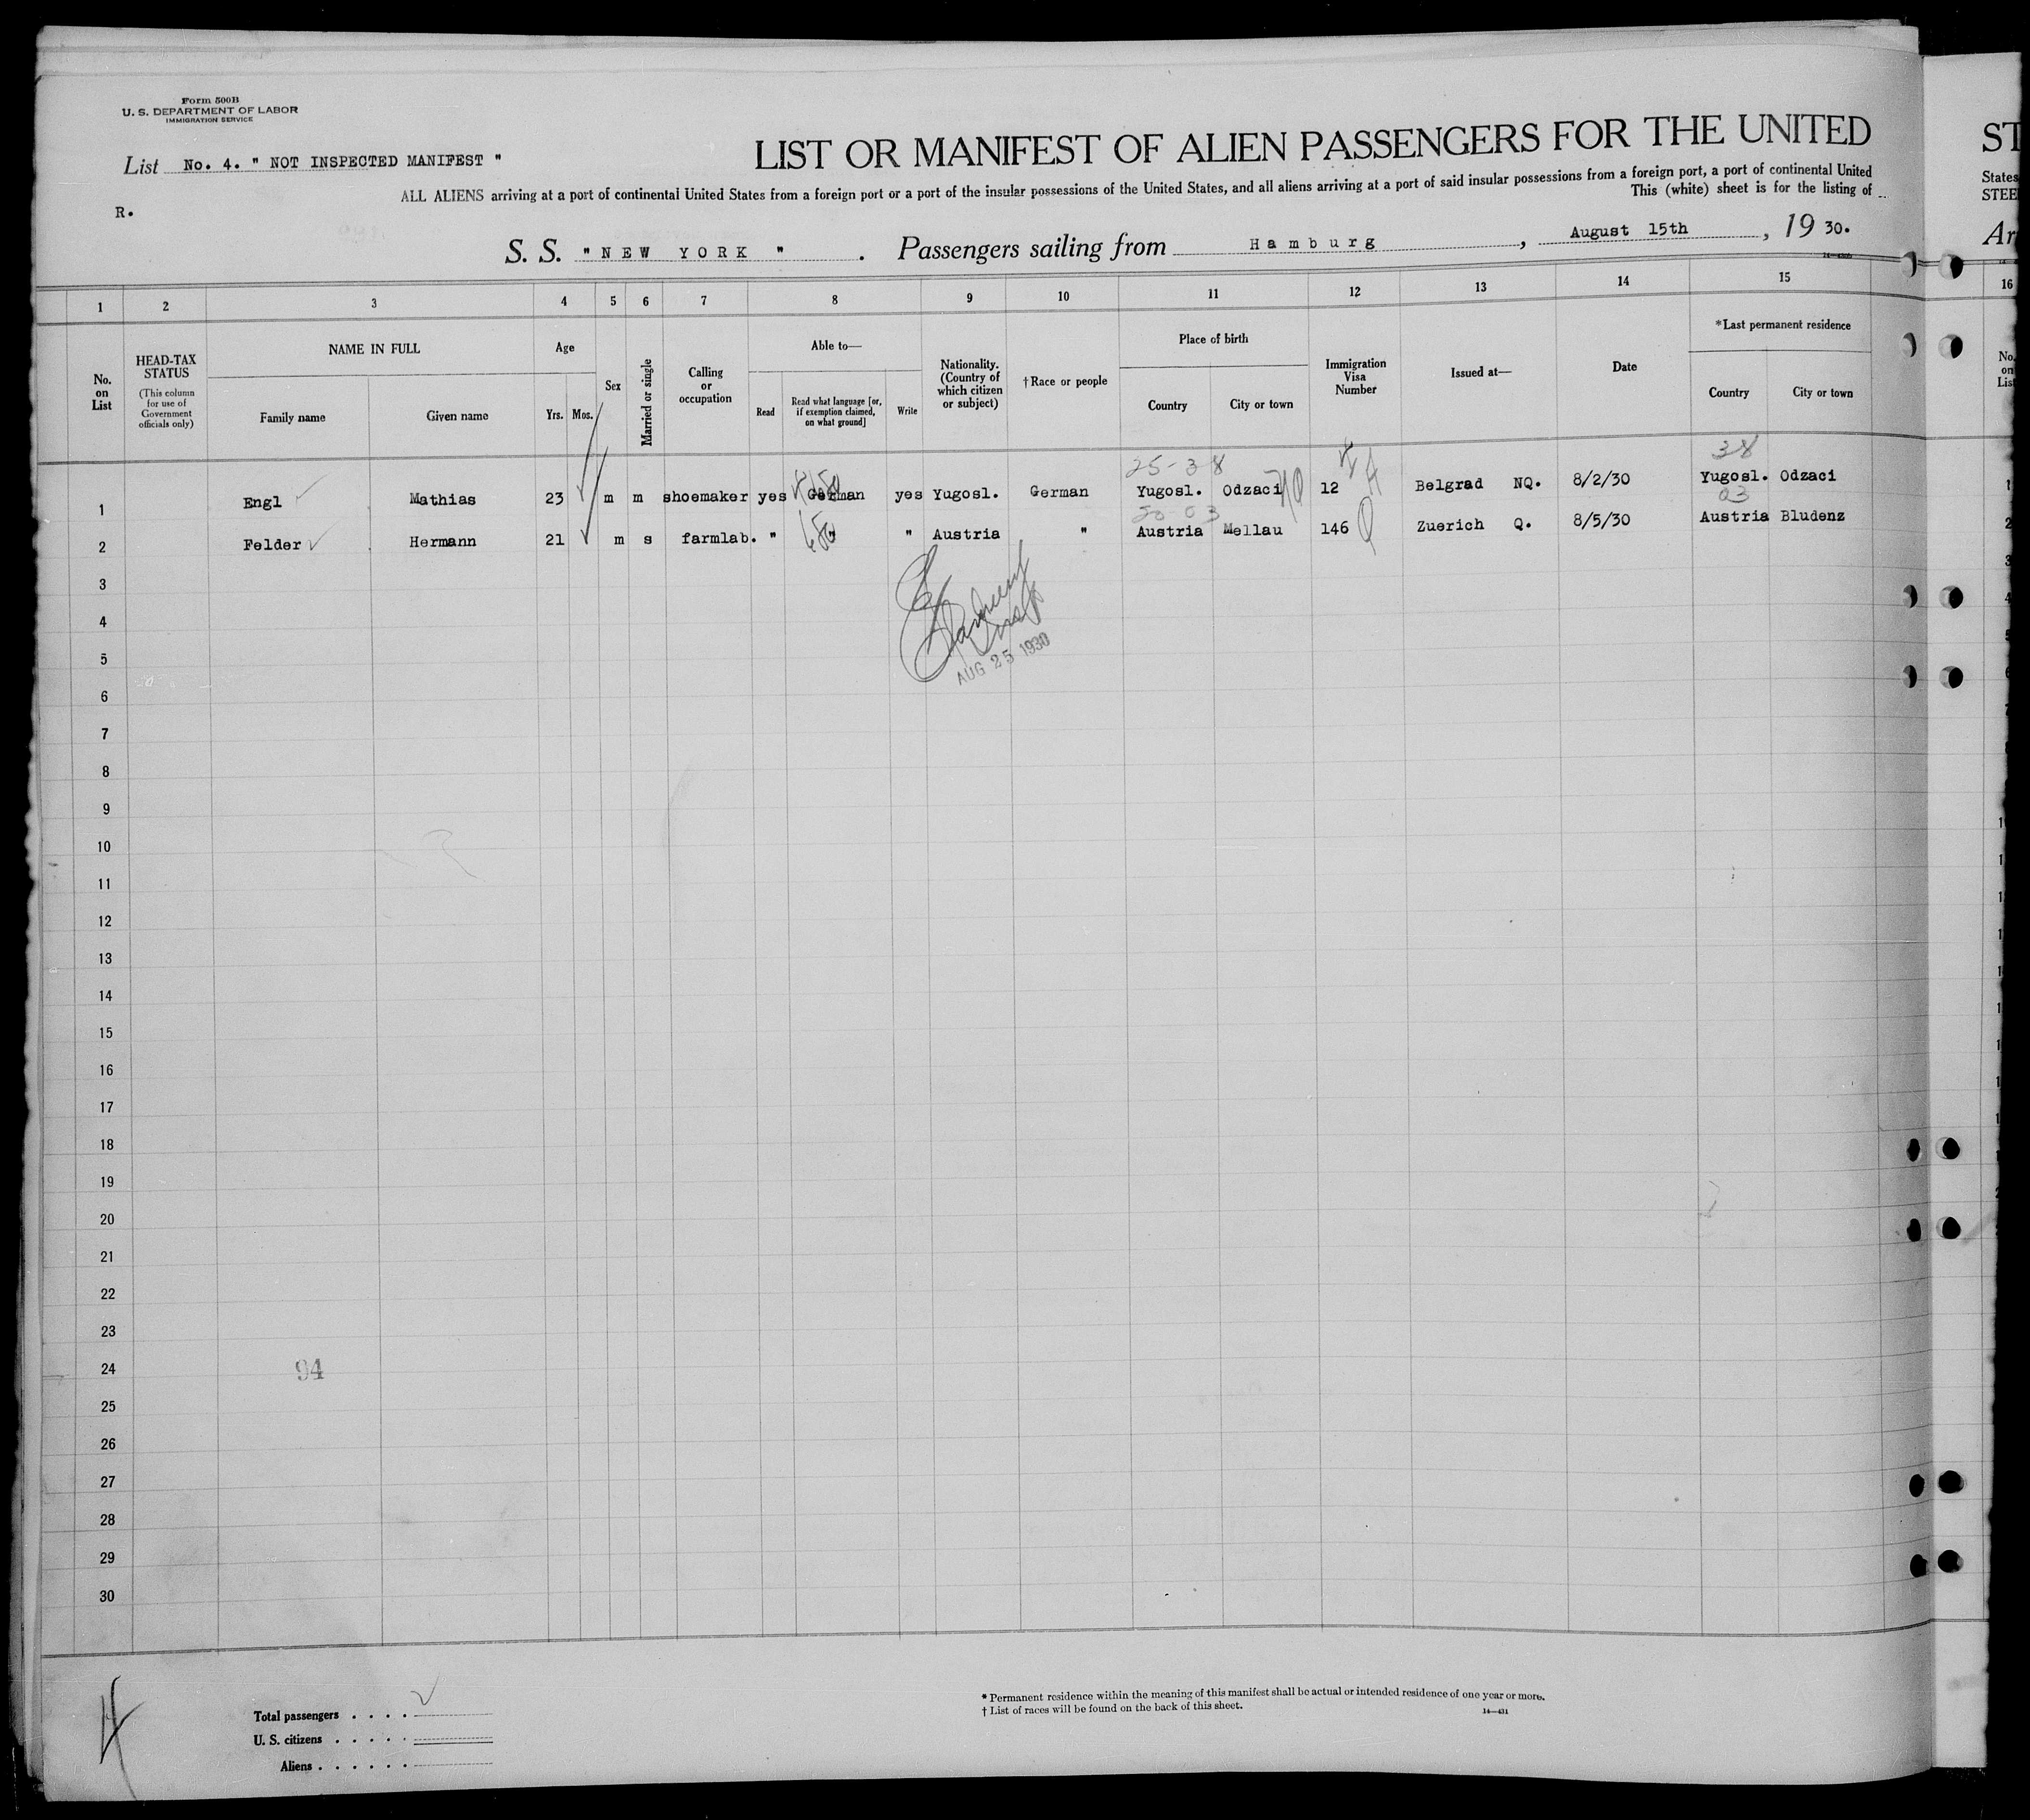 Form 500B
U. S. DEPARTMENT OF LABOR
IMMIGRATION SERVICE
List No. 4. " NOT INSPECTED MANIFEST "
R.
LIST OR MANIFEST OF ALIEN PASSENGERS FOR THE UNITED
ALL ALIENS arriving at a port of continental United States from a foreign port or a port of the insular possessions of the United States, and all aliens arriving at a port of said insular possessions from a foreign port, a port of continental United
This (white) sheet is for the listing of
S. S. " NEW YORK " . Passengers sailing from Hamburg , August 15th , 19 30.
ST
States
STEE
Ar
1 2 3 4 5 6 7 8 9 10 11 12 13 14 15 16
No. on List
HEAD-TAX STATUS
(This column for use of Government officials only)
NAME IN FULL
Family name
Given name
Age
Yrs.
Mos.
Sex
Married or single
Calling or occupation
Able to—
Read
Read what language [or, if exemption claimed, on what ground]
Write
Nationality. (Country of which citizen or subject)
†Race or people
Place of birth
Country
City or town
Immigration Visa Number
Issued at—
Date
*Last permanent residence
Country
City or town
No. on List
25-38
38
1 Engl Mathias 23 m m shoemaker yes German yes Yugosl. German Yugosl. Odzaci 12 Belgrad NQ. 8/2/30 Yugosl. Odzaci
03
2 Felder Hermann 21 m s farmlab. " " " Austria " Austria Mellau 146 Q Zuerich Q. 8/5/30 Austria Bludenz
3
4
5
AUG 25 1930
6
7
8
9
10
11
12
13
14
15
16
17
18
19
20
21
22
23
24
94
25
26
27
28
29
30
Total passengers . . . .
U. S. citizens . . . . .
Aliens . . . . . .
* Permanent residence within the meaning of this manifest shall be actual or intended residence of one year or more.
† List of races will be found on the back of this sheet.
14—431